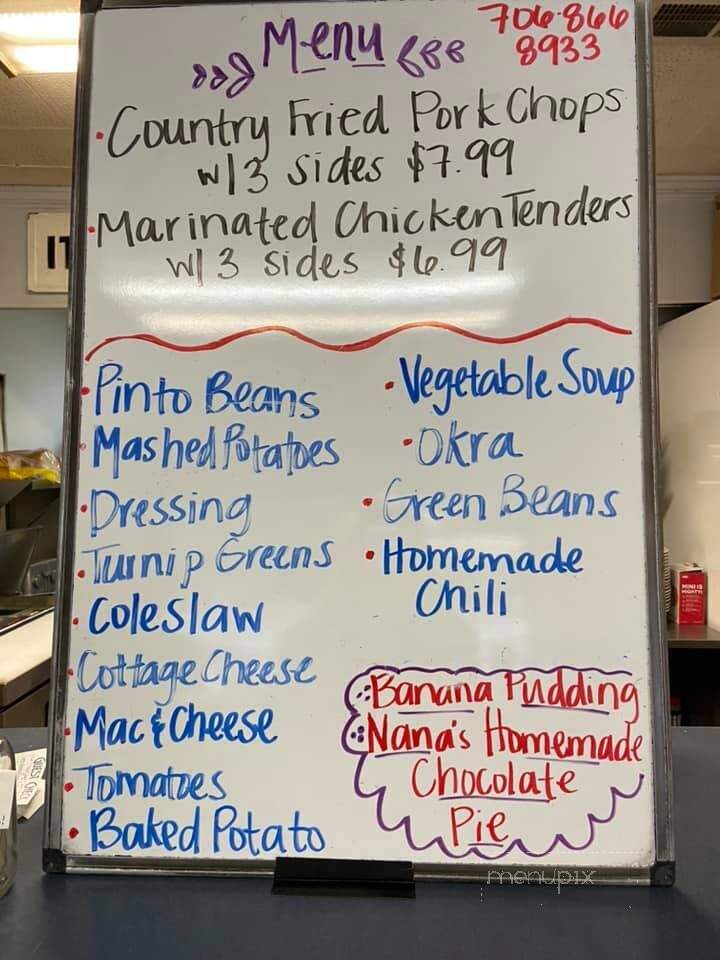 Menu
706-866
8933
• Country Fried Pork Chops
w/3 sides $7.99
• Marinated Chicken Tenders
w/ 3 sides $6.99
• Pinto Beans
• Mashed Potatoes
• Dressing
• Turnip Greens
• Coleslaw
• Cottage Cheese
• Mac & Cheese
• Tomatoes
• Baked Potato
• Vegetable Soup
• Okra
• Green Beans
• Homemade
Chili
Banana Pudding
Nana's Homemade
Chocolate
Pie
IT
MINI IS
MIGHTY
GUEST CHECK
menupix